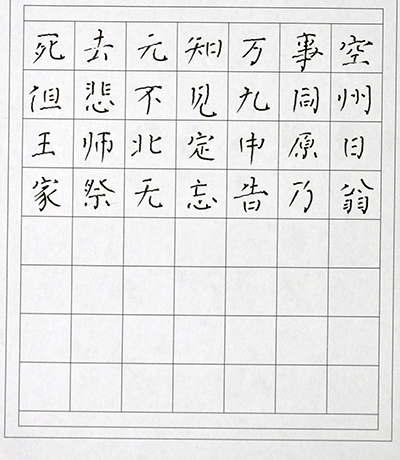 死去元知万事空
但悲不见九同州
王师北定中原日
家祭无忘告乃翁